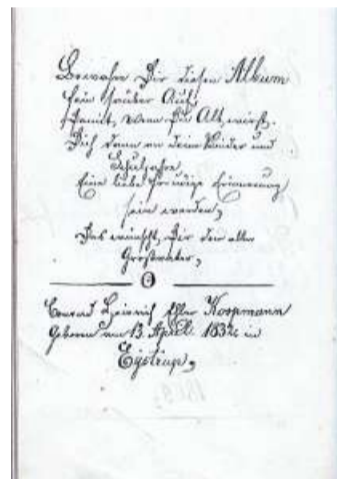 Bewahre Dir diesen Album
fein sauber Auf,
Damit, wenn Du Alt wirst.
Dich dann an dein Kinder und
Schuljahre,
Eine liebe Erinnerung
sein werden,
Das wünscht, Dir den alten
Großvater,
Conrad Heinrich Koopmann
Geboren am 13. April. 1832 in
Eystrup,